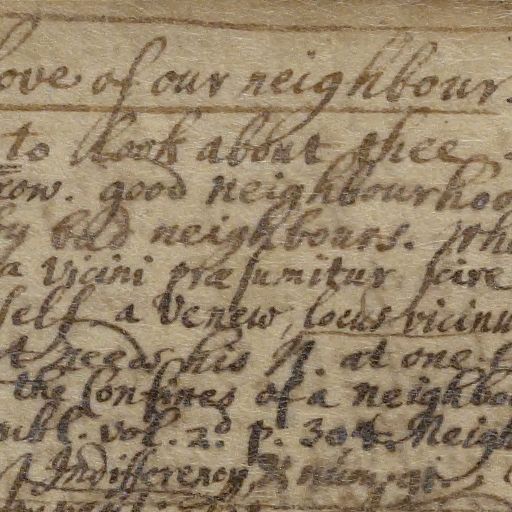 love of our neighbour.
to look about thee
know. good neighbourhoo
by bad neighbours. Whe
a vicini præsumitur scire
self a Venew, locus vicinu
t needs his q. at one
the Confines of a neighbo
vol. 2d. p. 304. Neigh
Indifferency, &